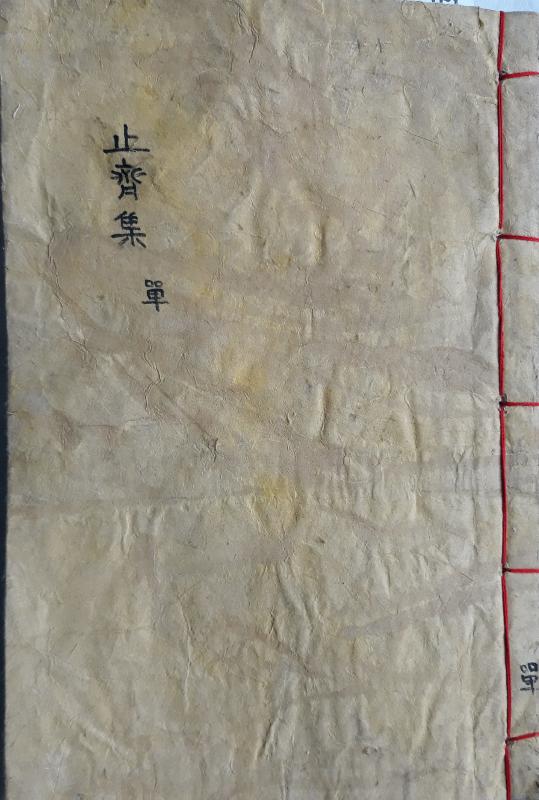 止齊集
單
單